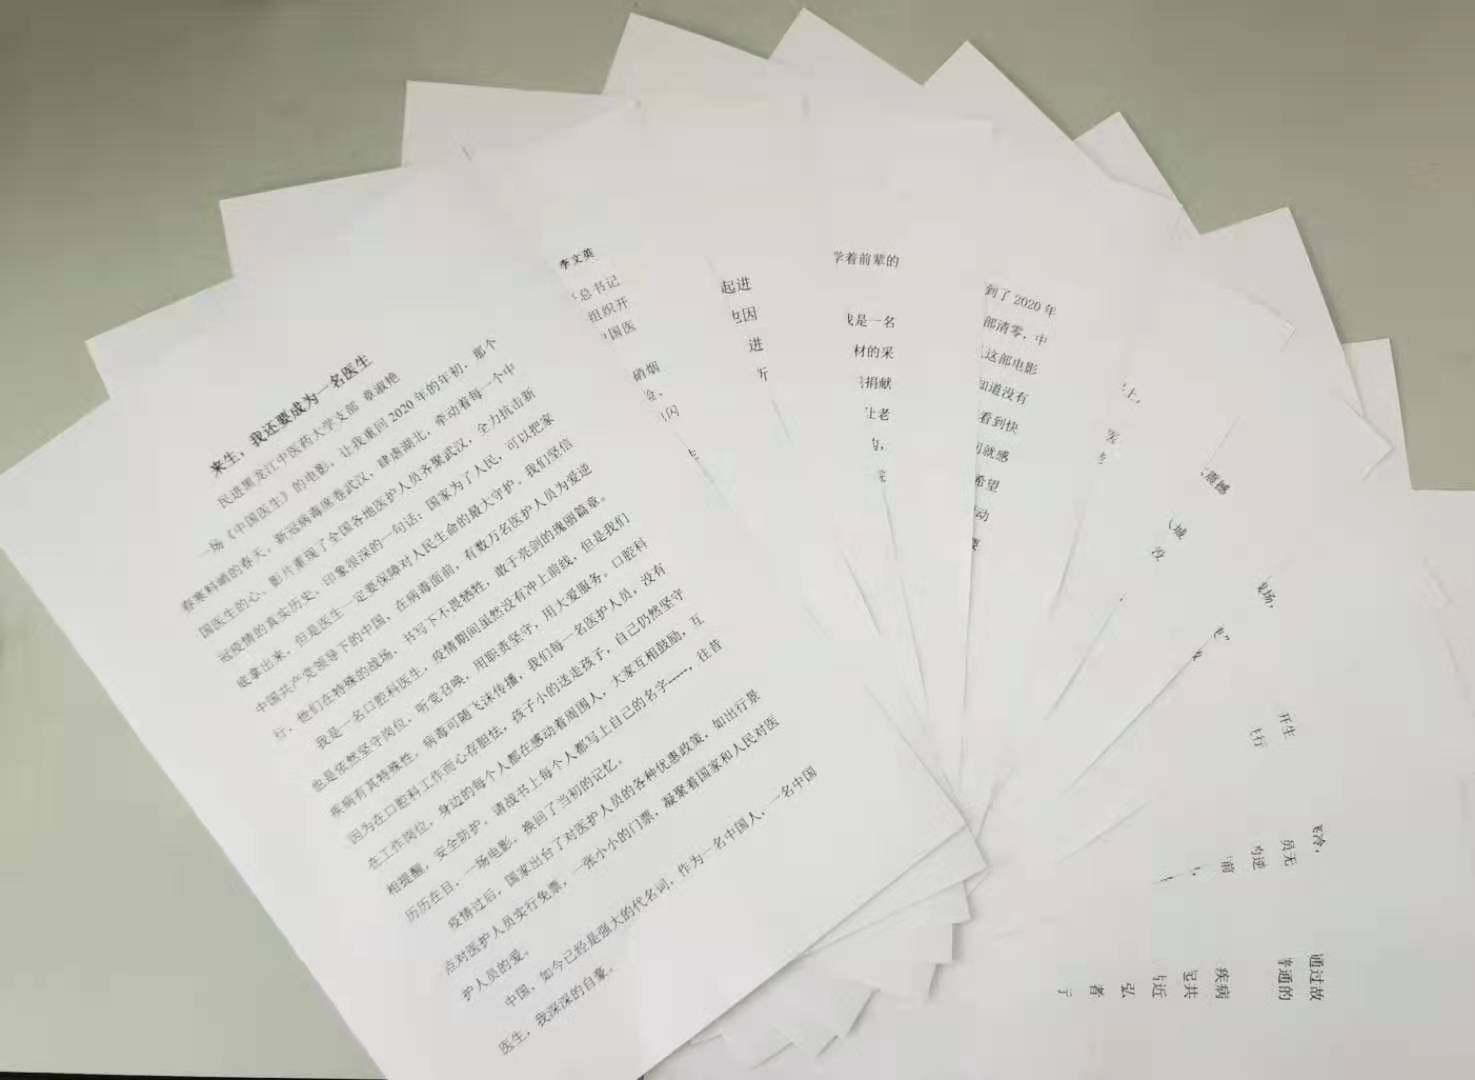 来生，我还要成为一名医生
民进黑龙江中医药大学支部 章淑艳
一场《中国医生》的电影，让我重回2020年的年初，那个
春寒料峭的春天，新冠病毒席卷武汉，肆虐湖北，牵动着每一个中
国医生的心，影片重现了全国各地医护人员齐聚武汉，全力抗击新
冠疫情的真实历史，印象很深的一句话：国家为了人民，可以把家
底拿出来，但是医生一定要保障对人民生命的最大守护。我们坚信
中国共产党领导下的中国，在病毒面前，有数万名医护人员为爱逆
行，他们在特殊的战场，书写下不畏牺牲，敢于亮剑的瑰丽篇章。
我是一名口腔科医生，疫情期间虽然没有冲上前线，但是我们
也是依然坚守岗位，听党召唤，用职责坚守，用大爱服务。口腔科
疾病有其特殊性，病毒可随飞沫传播，我们每一名医护人员，没有
因为在口腔科工作而心存胆怯，孩子小的送走孩子，自己仍然坚守
在工作岗位，身边的每个人都在感动着周围人，大家互相鼓励，互
相提醒，安全防护，请战书上每个人都写上自己的名字-----，往昔
历历在目，一场电影，换回了当初的记忆。
疫情过后，国家出台了对医护人员的各种优惠政策，如出行景
点对医护人员实行免票，一张小小的门票，凝聚着国家和人民对医
护人员的爱。
中国，如今已经是强大的代名词，作为一名中国人，一名中国
医生，我深深的自豪。
李文英
总书记
组织开
中国医
硝烟
闪
起进
也因
进
所
学着前辈的
我是一名
材的采
捐献
让老
到了2020年
部清零，中
这部电影
知道没有
看到快
就感
希望
动
上，
震撼
城
没
场，
开生
飞行
冷，
员无
逆
前
通过故
普通的
疾病
足共
与近
弘
者
于